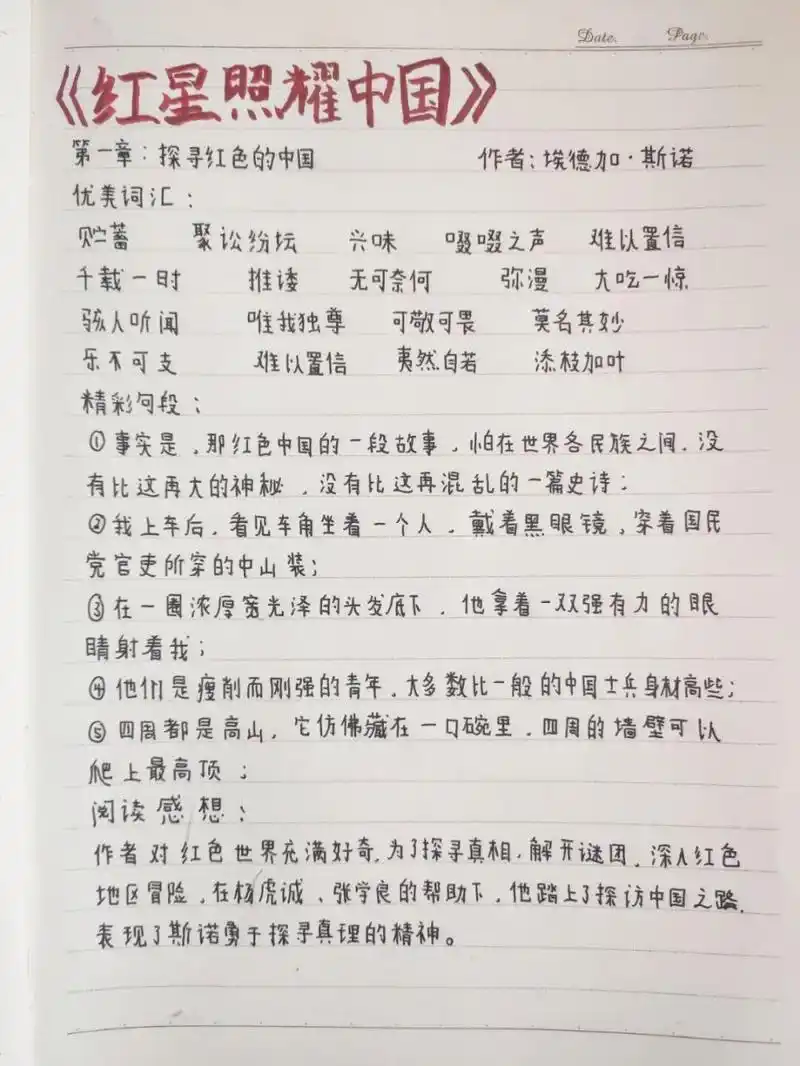 Date. Page.
《红星照耀中国》
第一章：探寻红色的中国 作者：埃德加·斯诺
优美词汇：
贮蓄 聚讼纷坛 兴味 啜啜之声 难以置信
千载一时 推诿 无可奈何 弥漫 大吃一惊
骇人听闻 唯我独尊 可敬可畏 莫名其妙
乐不可支 难以置信 夷然自若 添枝加叶
精彩句段：
①事实是，那红色中国的一段故事，怕在世界各民族之间，没
有比这再大的神秘，没有比这再混乱的一篇史诗；
②我上车后，看见车角坐着一个人，戴着黑眼镜，穿着国民
党官吏所穿的中山装；
③在一圈浓厚宽光泽的头发底下，他拿着一双强有力的眼
睛射着我；
④他们是瘦削而刚强的青年，大多数比一般的中国士兵身材高些；
⑤四周都是高山，它仿佛藏在一口碗里，四周的墙壁可以
爬上最高顶；
阅读感想：
作者对红色世界充满好奇，为了探寻真相，解开谜团，深入红色
地区冒险，在杨虎诚、张学良的帮助下，他踏上了探访中国之路，
表现了斯诺勇于探寻真理的精神。